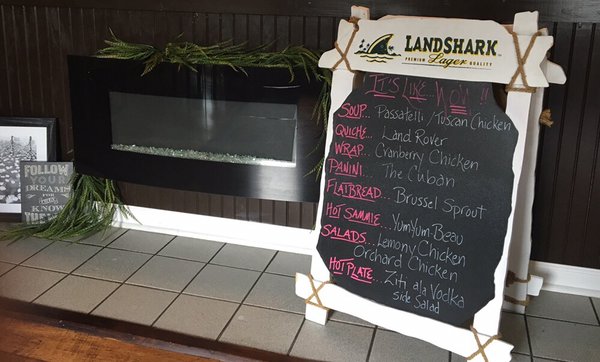 LANDSHARK
PREMIUM Lager QUALITY
IT'S LIKE WOW!!
SOUP... Passatelli / Tuscan Chicken
QUICHE... Land Rover
WRAP... Cranberry Chicken
PANINI... The Cuban
FLATBREAD... Brussel Sprout
HOT SAMMIE... YumYum-Beau
SALADS... Lemony Chicken
Orchard Chicken
HOT PLATE... Ziti ala Vodka
Side Salad
FOLLOW
YOUR
DREAMS
FOR
KNOW
THE